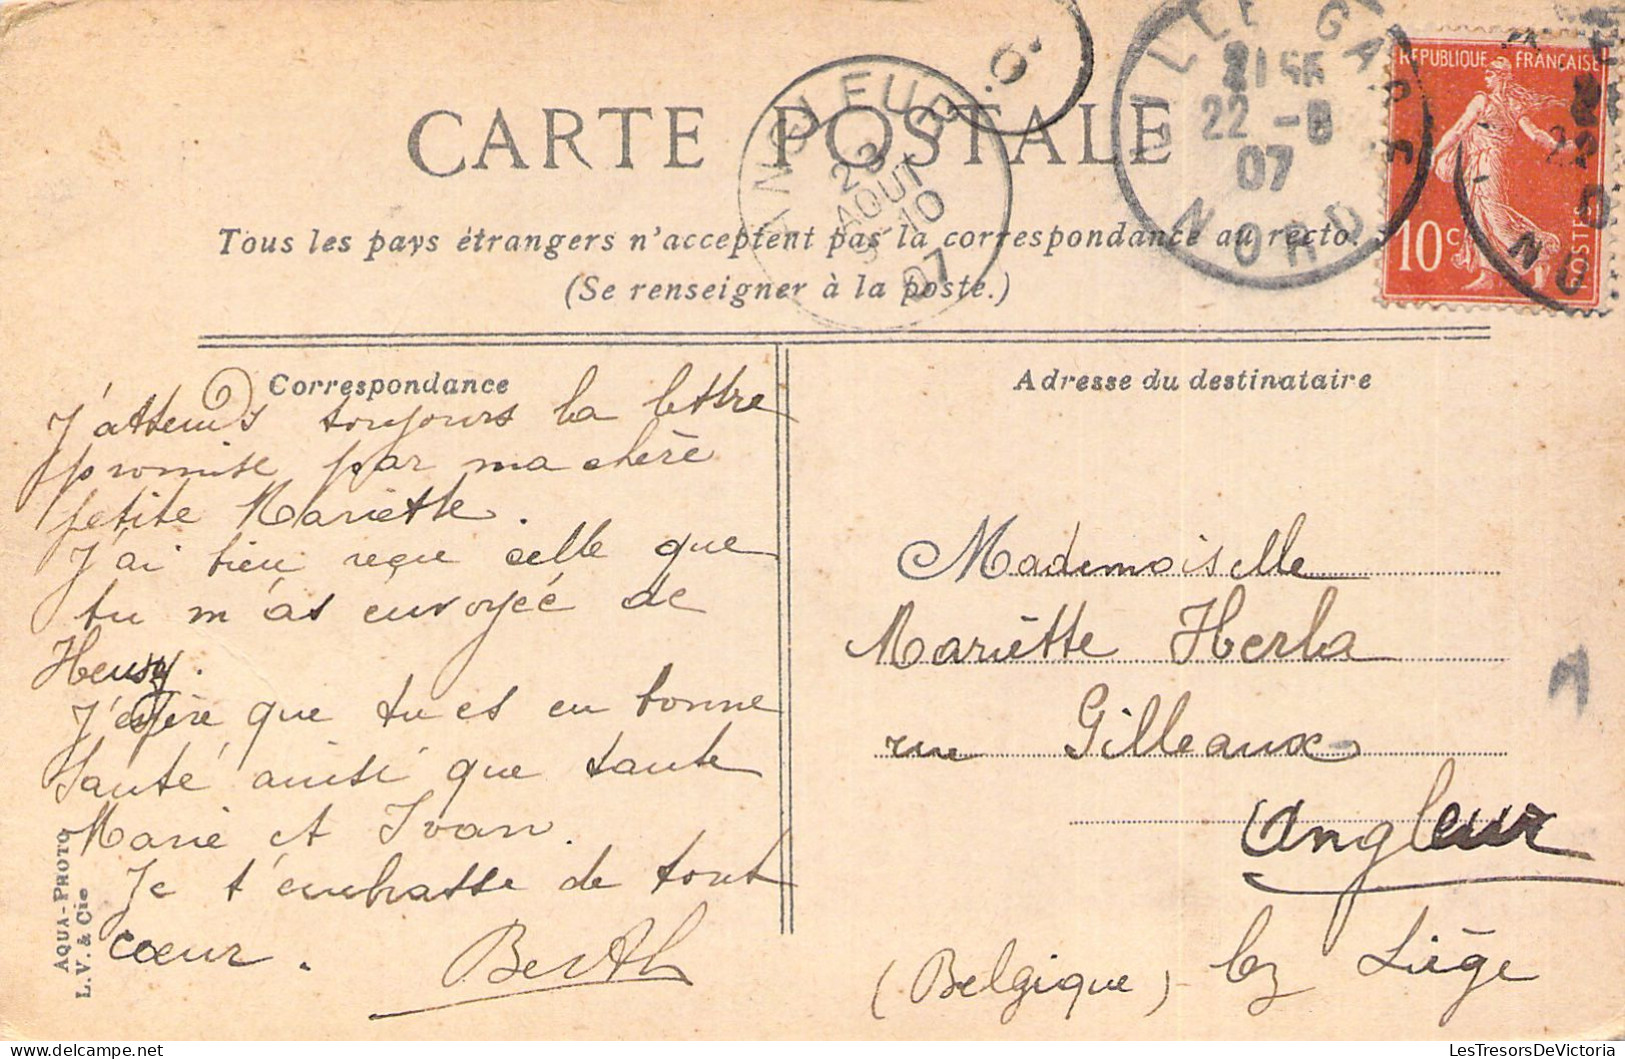 CARTE POSTALE
Tous les pays étrangers n'acceptent pas la correspondance au recto.
(Se renseigner à la poste.)
ANGLEUR
23
AOUT
9-10
07
LILLE GARE
22 -8
07
NORD
REPUBLIQUE FRANÇAISE
10c
POSTES
Correspondance
J'attends toujours la lettre
promise par ma chère
petite Mariette.
J'ai bien reçu celle que
tu m'as envoyée de
Heusy.
J'espère que tu es en bonne
santé ainsi que tante
Marie et Ivan.
Je t'embrasse de tout
cœur.
Berth
AQUA-PHOTO
L.V. & Cie
Adresse du destinataire
Mademoiselle
Mariètte Herla
rue Gilleaux
Angleur
(Belgique) lez Liège
1
LesTresorsDeVictoria